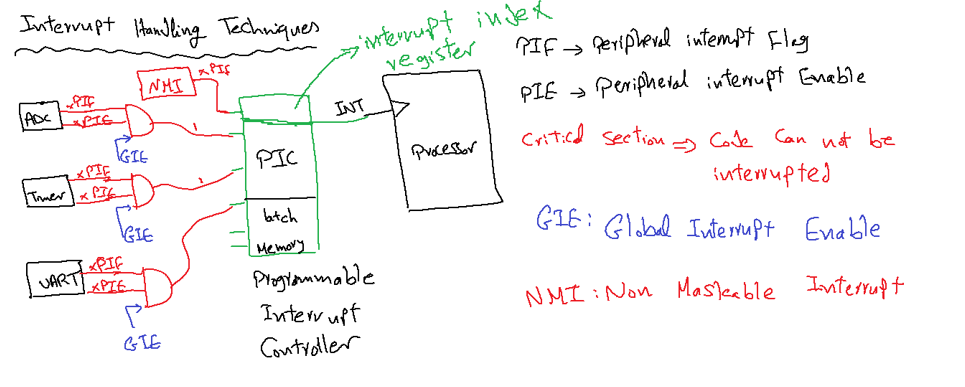 Interrupt Handling Techniques
interrupt index
register
NMI
xPIF
ADC
xPIF
xPIE
GIE
1
PIC
INT
Processor
Timer
xPIF
xPIE
GIE
1
latch
Memory
UART
xPIF
xPIE
GIE
Programmable
Interrupt
Controller
PIF → Peripheral interrupt Flag
PIE → Peripheral interrupt Enable
Critical section ⇒ Code Can not be
interrupted
GIE: Global Interrupt Enable
NMI: Non Maskable Interrupt